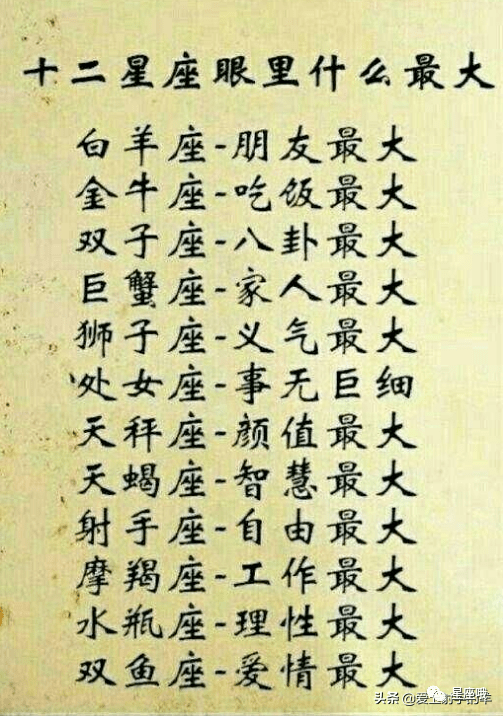 十二星座眼里什么最大
白羊座-朋友最大
金牛座-吃饭最大
双子座-八卦最大
巨蟹座-家人最大
狮子座-义气最大
处女座-事无巨细
天秤座-颜值最大
天蝎座-智慧最大
射手座-自由最大
摩羯座-工作最大
水瓶座-理性最大
双鱼座-爱情最大
头条 @爱
星座哦